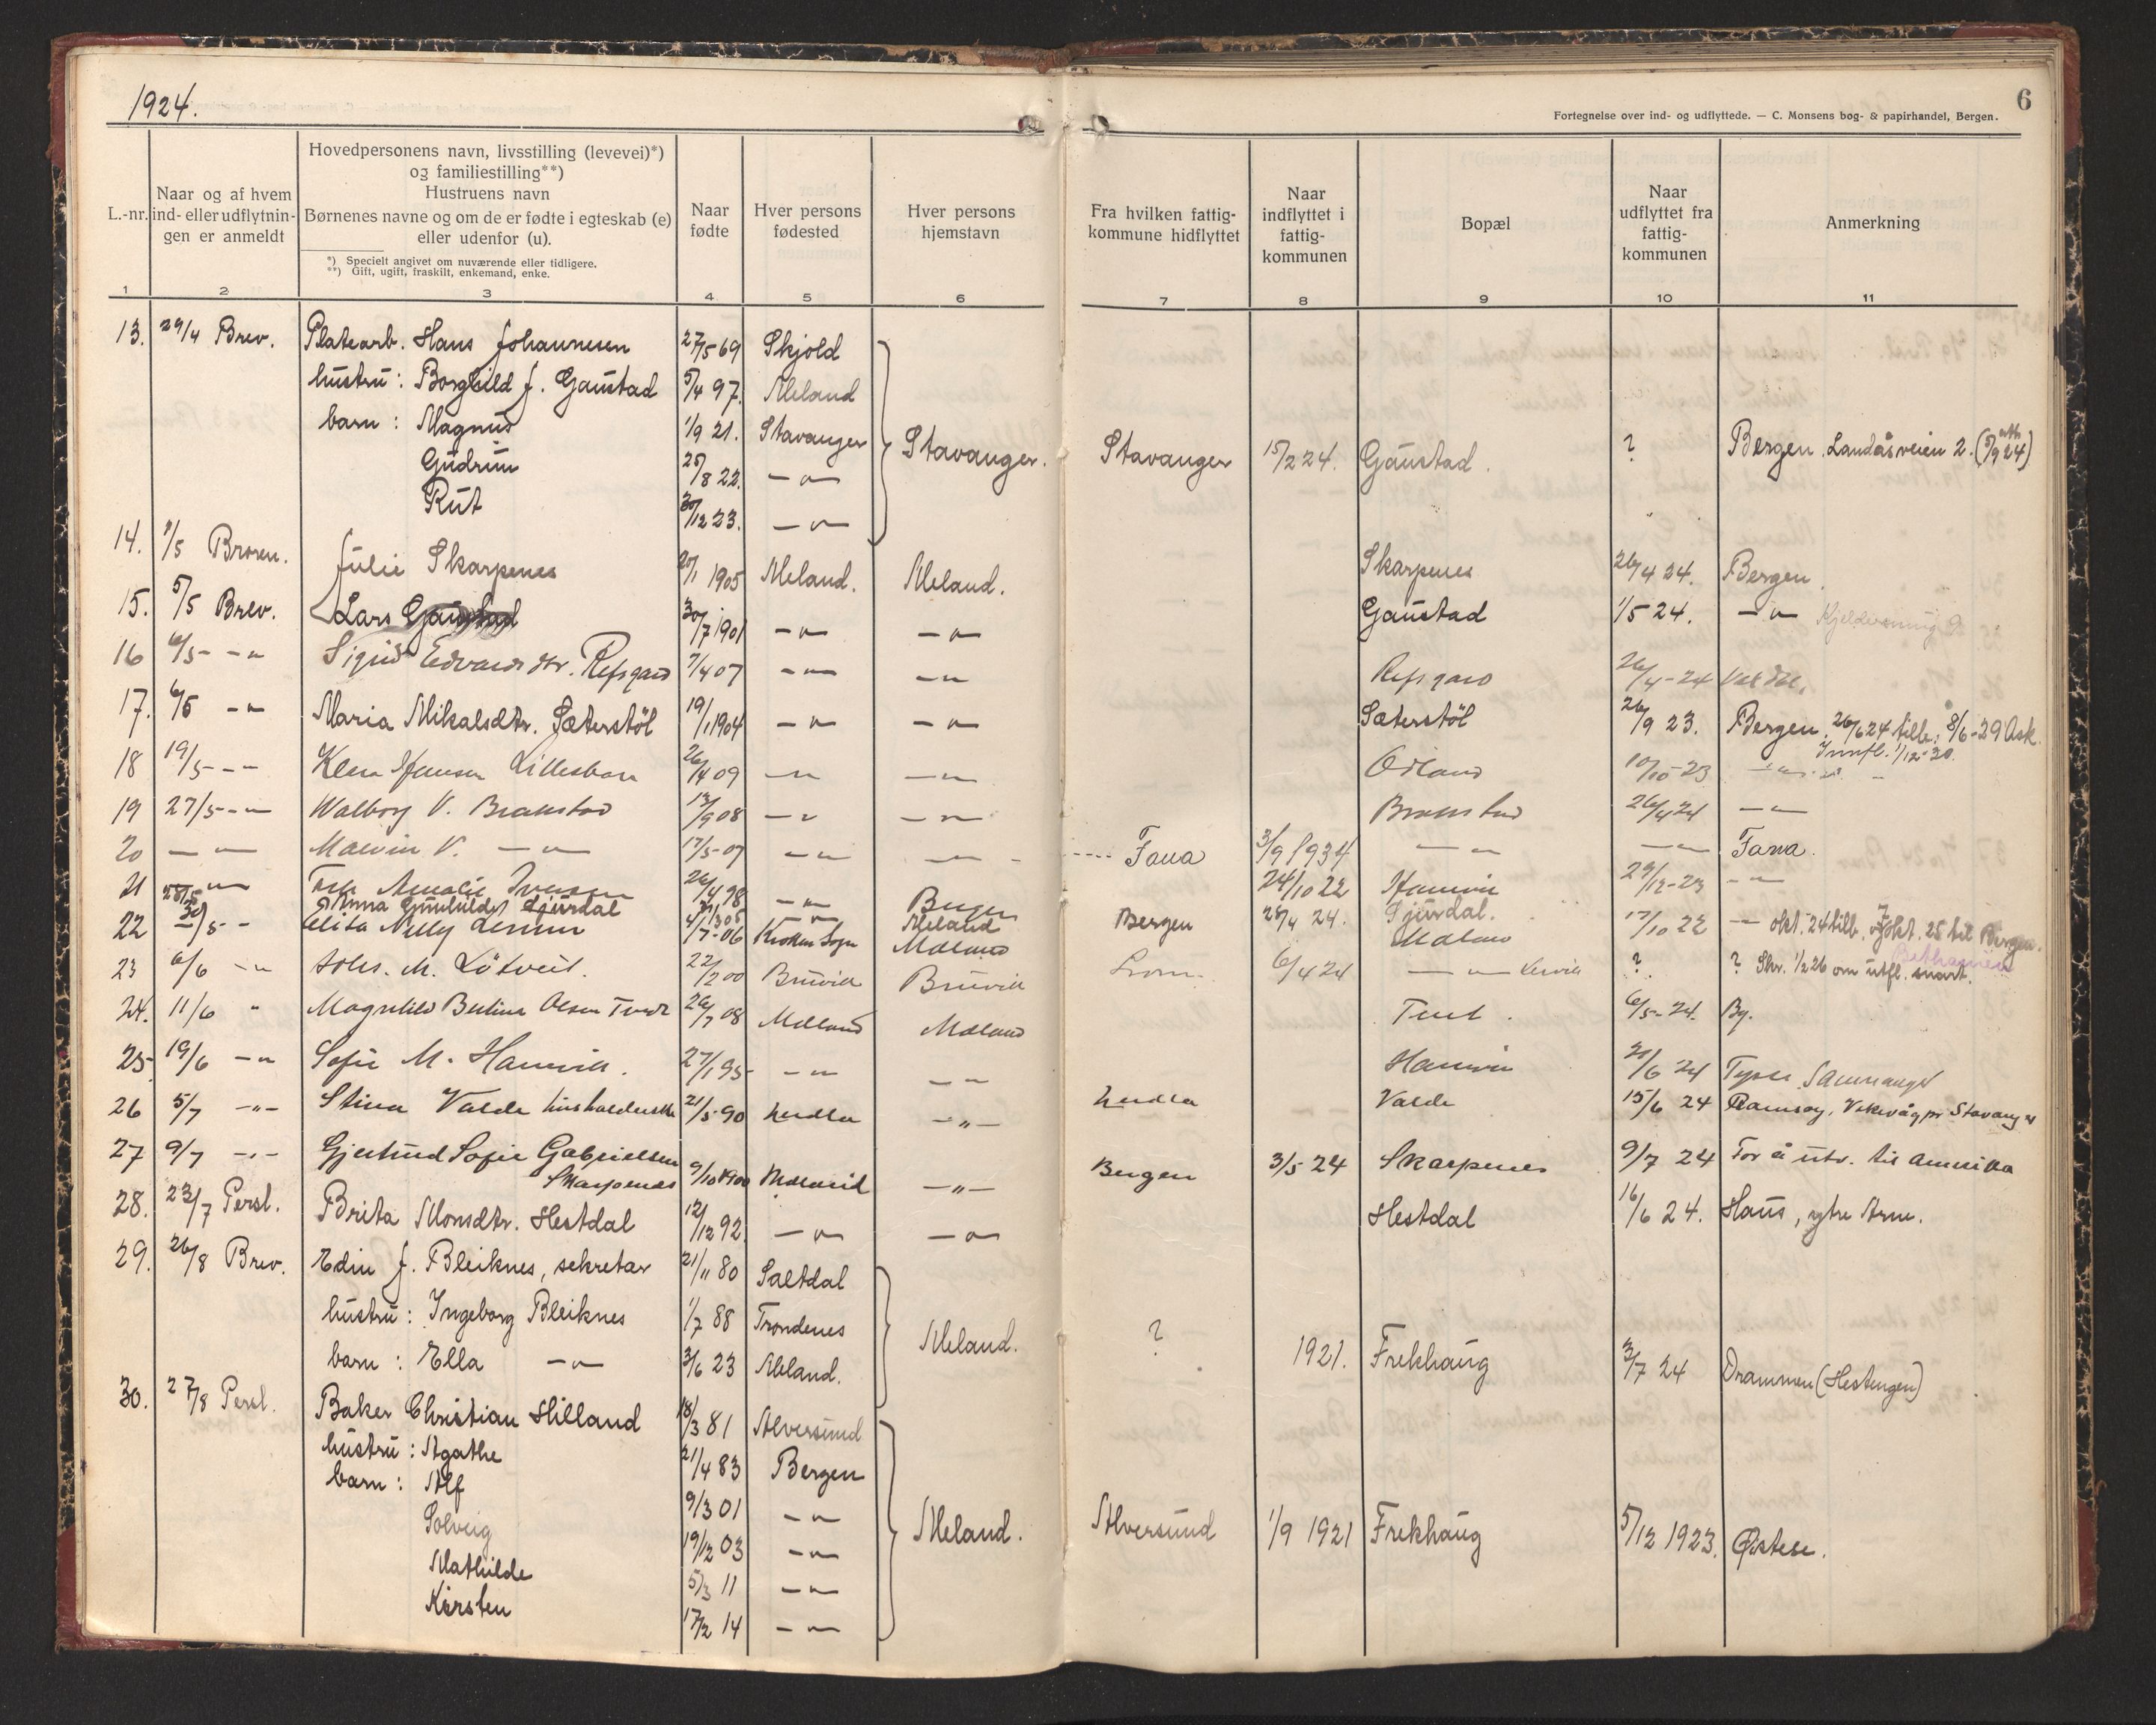 1924.
6
Fortegnelse over ind- og udflyttede. — C. Monsens bog- & papirhandel, Bergen.
L.-nr.
Naar og af hvem
ind- eller udflytnin-
gen er anmeldt
Hovedpersonens navn, livsstilling (levevei)*)
og familiestilling**)
Hustruens navn
Børnenes navne og om de er fødte i egteskab (e)
eller udenfor (u).
*) Specielt angivet om nuværende eller tidligere.
**) Gift, ugift, fraskilt, enkemand, enke.
Naar
fødte
Hver persons
fødested
Hver persons
hjemstavn
Fra hvilken fattig-
kommune hidflyttet
Naar
indflyttet i
fattig-
kommunen
Bopæl
Naar
udflyttet fra
fattig-
kommunen
Anmerkning
1 2 3 4 5 6 7 8 9 10 11
13. 29/4 Brev. Platearb. Hans Johannesen 27/5 69 Skjold
hustru: Borghild J. Gaustad 5/4 97. Meland
barn: Magnus 1/9 21. Stavanger Stavanger. Stavanger 15/2 24. Gaustad. ? Bergen. Landåsveien 2. (5/9 24)
Gudrun 25/8 22. — " —
Rut 30/12 23. — " —
14. 1/5 Broren. Julie Skarpenes 20/1 1905 Meland. Meland. Skarpenes 26/4 24. Bergen.
15. 5/5 Brev. Lars Gaustad 30/7 1901 — " — — " — Gaustad 1/5 24. — " —
16 6/5 - — " Sigrid Edvardsdtr. Refsgard 7/4 07 — " — — " — Refsgard 26/4-24
17. 6/5 — " Maria Mikalsdtr. Sæterstöl 19/1 1904 — " — — " — Sæterstöl 26/9 23. Bergen, 26/6 24 tilb. 8/6-29 Ask.
Innfl. 1/12-30.
18 19/5 - — 26/4 09 — " — " 10/10-23
19 27/5 - — " Valborg V. Brakstad 13/9 08 — " — — " — Brakstad 26/4 24 — " —
20 — " — V. — " — 17/5-07 — " — — " — Fana 3/9 1934 — " — — " — Fana.
21 — " Amalie Iversen 26/4 98 — " — Bergen 24/10 22 Hamvik 29/12-23 — " —
28/5 Anna Gunhildsd. Gjurdal — " — Meland Bergen 28/4 24. Gjurdal.
22 Nelly 4/7-06 Meland Meland 17/10 22 — okt. 24 tilb. 7 okt. 25 til Bergen.
23 6/6 — " Johs. M. Lötveit. 22/2 00 Bruvik Bruvik 6/4 24 — " — ? ? Skr. 1/2 26 om utfl. snart.
24. 11/6 " Magnhild Bertine Olsen 26/7 08 Meland Meland 6/5-24. Bg.
25 19/6 — " Sofie M. Hamvik. 27/1 95 — " — — " — Hamvik 21/6 24 Samnanger
26 5/7 — " — Stina Valde husholderske 21/5-90 Herdla — " — Herdla Valde 15/6 24 Ramsøy, Vikevåg pr. Stavanger
27 9/7 — " — Gjertrud Sofie Gabrielsen
Skarpenes 9/10 1900 Meland — " — Bergen 3/5 24 Skarpenes 9/7 24 For å utv. til Amerika
28. 23/7 Persl. Brita Monsdtr. Hestdal 12/12 92. — " — — " — Hestdal 16/6 24. Haus, ytre Arne.
29. 26/8 Brev. Edin J. Bleiknes, sekretær 21/11 80 Saltdal
hustru: Ingeborg Bleiknes 1/7 88 Trondenes Meland. ?
barn: Ella — " — 3/6 23 Meland. 1921. Frekhaug 3/7 24 Drammen (Hestengen)
30. 27/8 Persl. Baker Christian Hilland 18/3 81 Alversund
hustru: Agathe 21/4 83 Bergen
barn: Alf 9/3 01 — " —
Solveig 19/12 03 — " — Meland. Alversund 1/9 1921 Frekhaug 5/12 1923. Østese.
Mathilde 5/3 11 — " —
Kirsten 17/2 14 — " —